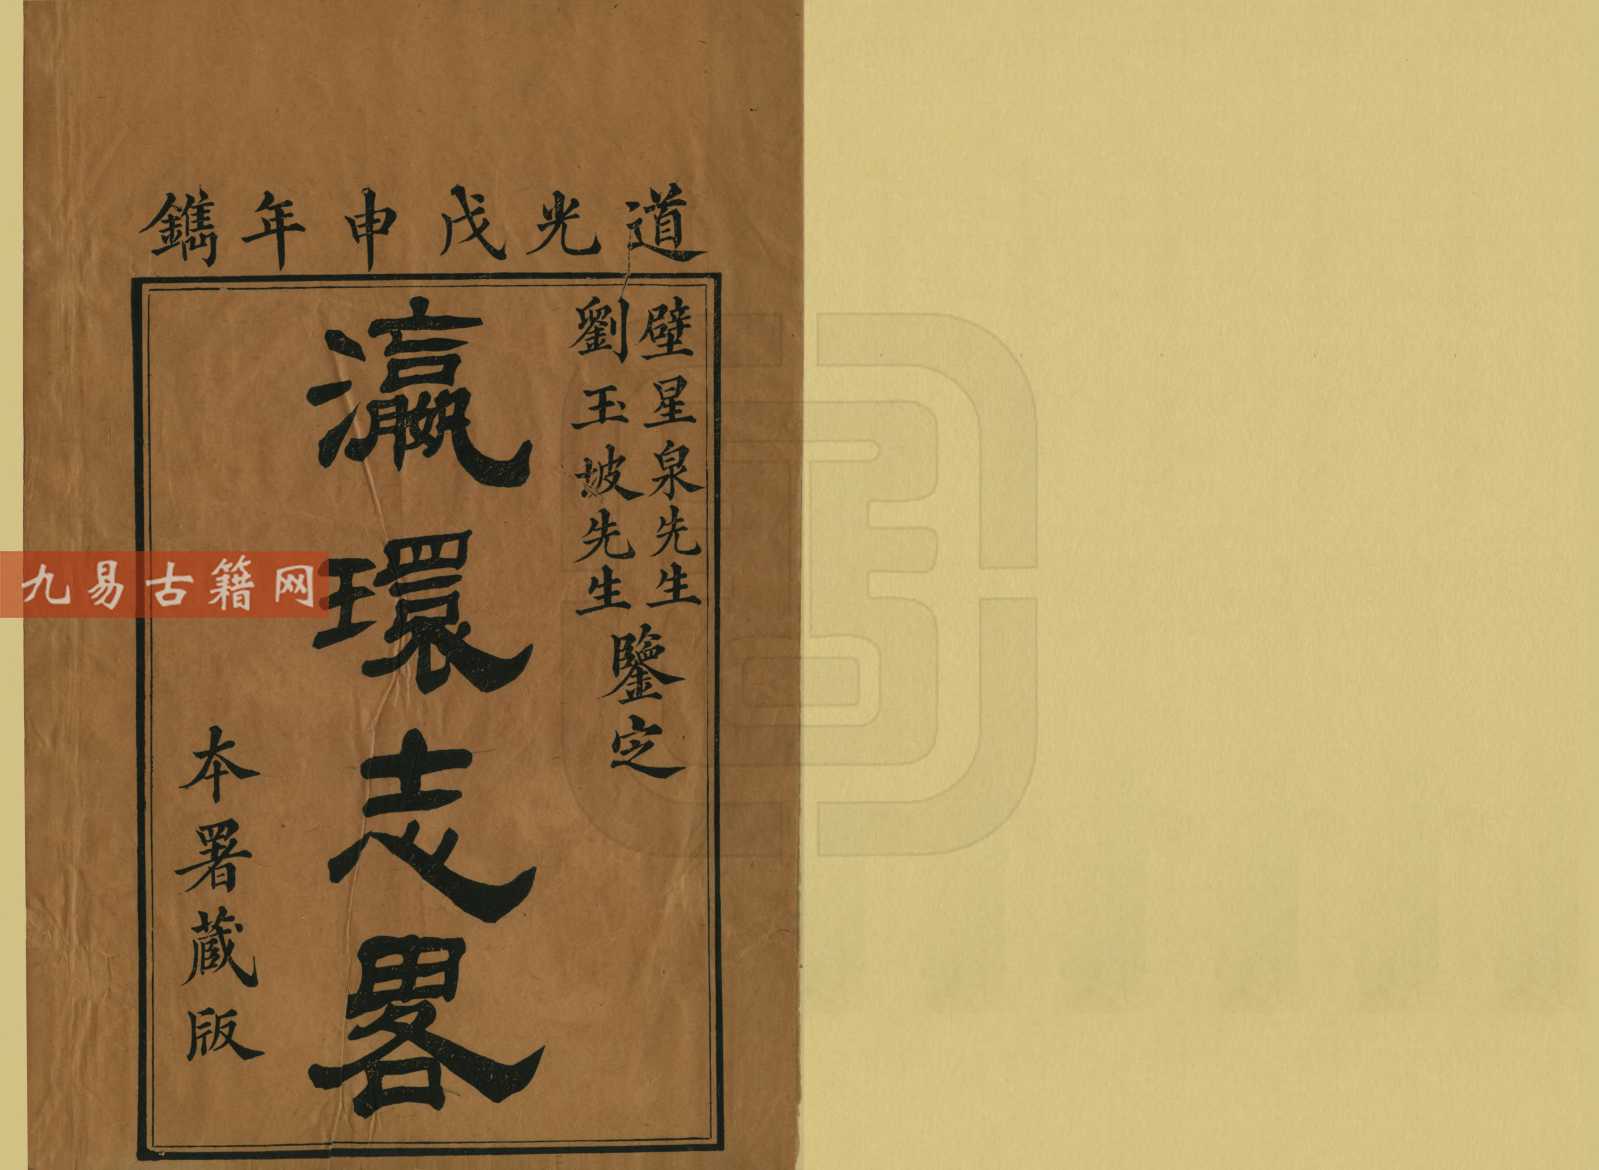 道光戊申年鐫
壁星泉先生
劉玉坡先生
鑒定
瀛環志畧
本署藏版
九易古籍网